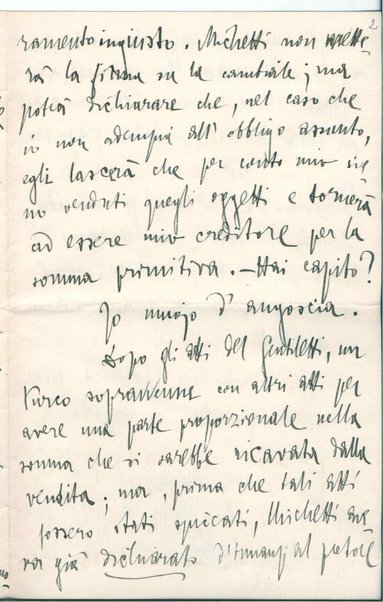 2
ramento ingiusto. Michetti non mette-
rà la firma su la cambiale; ma
potrà dichiarare che, nel caso che
io non adempia all'obbligo assunto,
egli lascerà che per conto mio sie-
no venduti quegli oggetti e tornerà
ad essere mio creditore per la
somma primitiva. – Hai capito?
Io muojo d'angoscia.
Dopo gli atti del Gentiletti, un
Vurco sopravvenne con altri atti per
avere una parte proporzionale nella
somma che si sarebbe ricavata dalla
vendita; ma, prima che tali atti
fossero stati spiccati, Michetti ave-
va già dichiarato d'innanzi al pretore